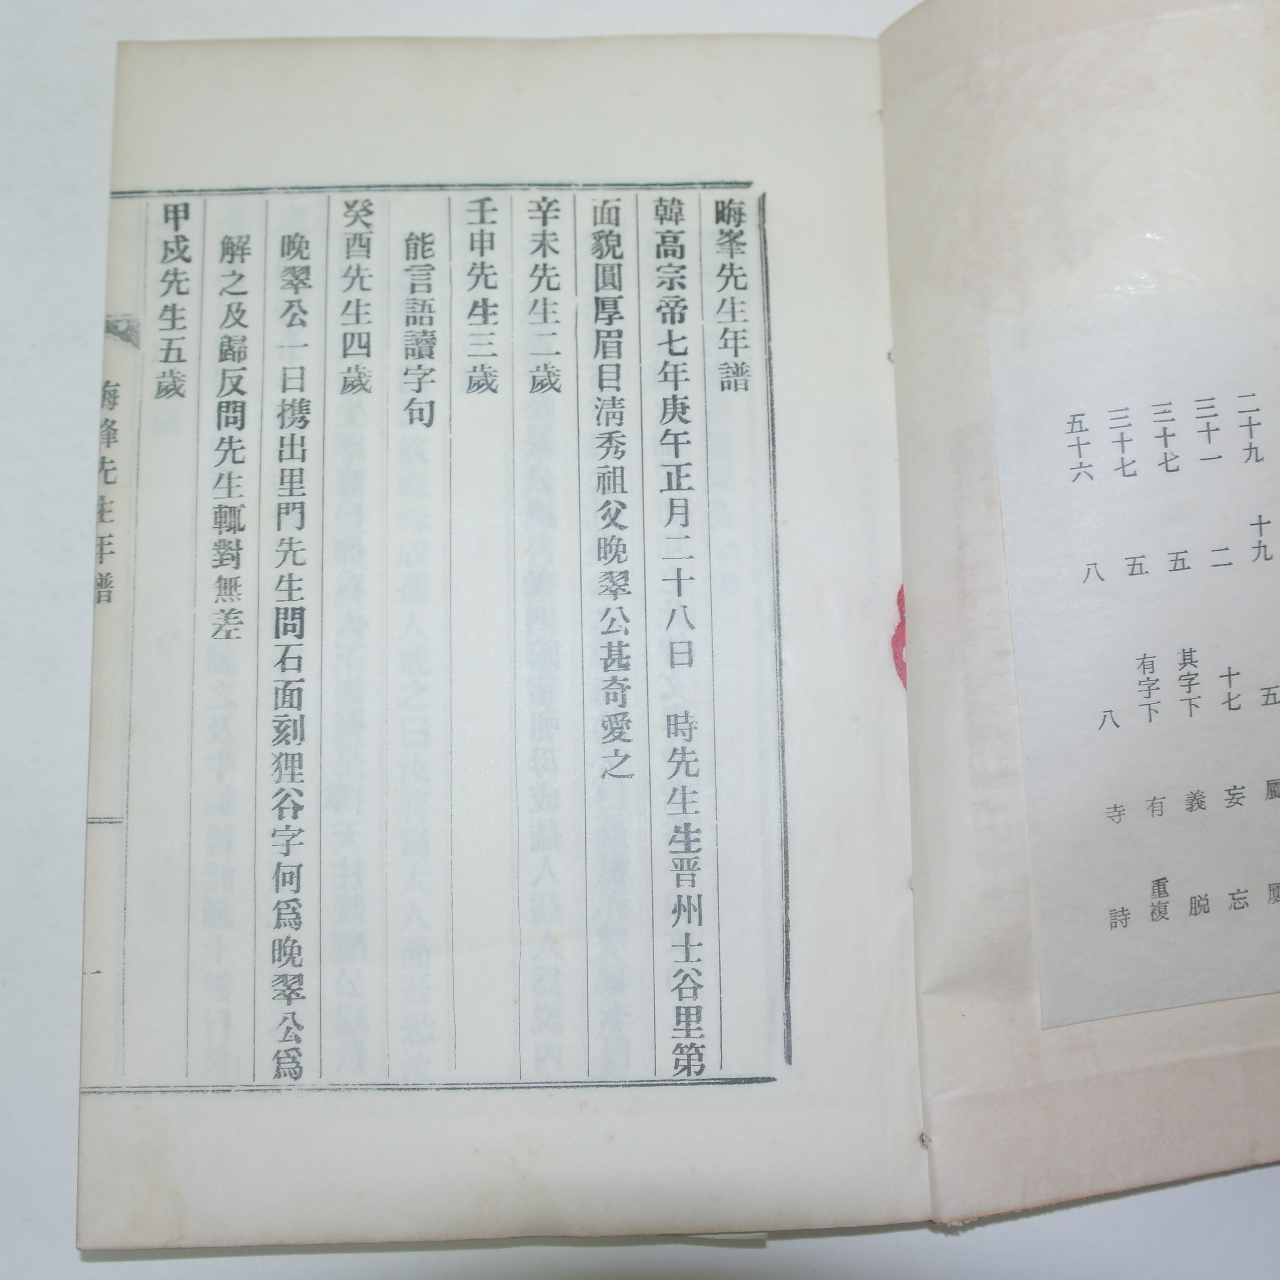 二十九 十九 五
三十一 二 十七 妄 忘
三十七 五 其字下 義 脱
三十七 五 有字下 有 重複
五十六 八 八 寺 詩
晦峯先生年譜
韓高宗帝七年庚午正月二十八日 時先生生晋州士谷里第
面貌圓厚眉目淸秀祖父晩翠公甚奇愛之
辛未先生二歲
壬申先生三歲
能言語讀字句
癸酉先生四歲
晩翠公一日携出里門先生問石面刻狸谷字何爲晩翠公爲
解之及歸反問先生輒對無差
甲戌先生五歲
晦峰先生年譜
一